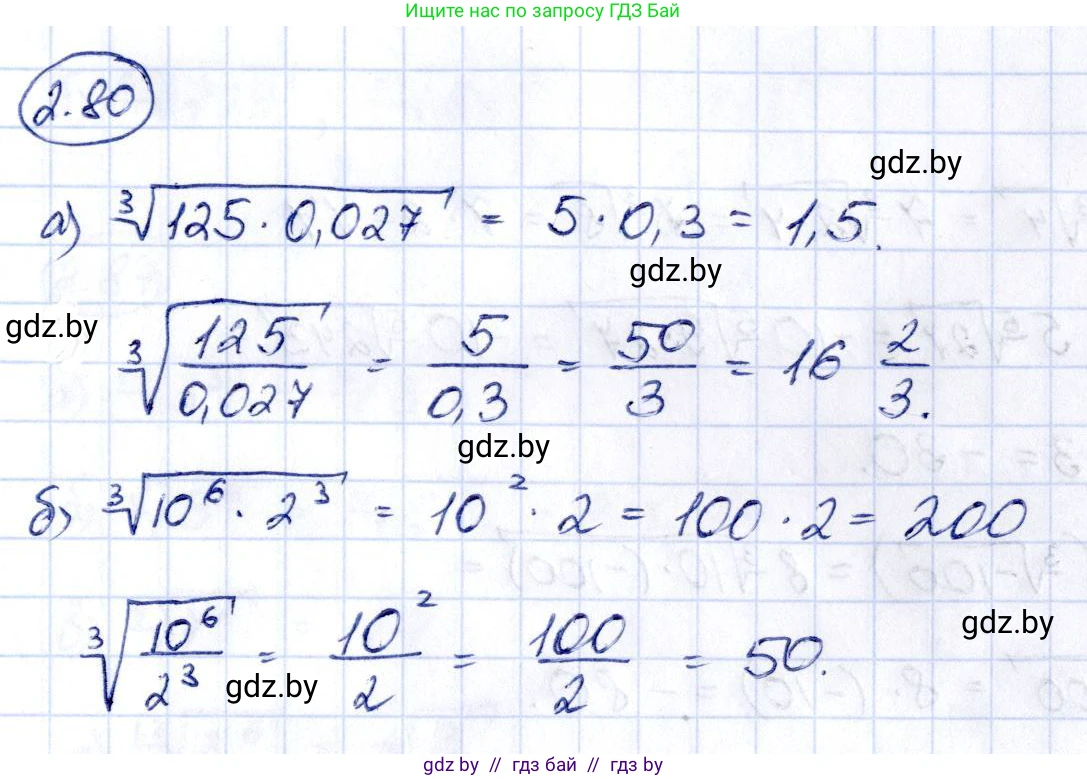 Ищите нас по запросу ГДЗ Бай
2.80
gdz.by
а) ∛(125 · 0,027) = 5 · 0,3 = 1,5.
gdz.by
gdz.by
∛(125/0,027) = 5/0,3 = 50/3 = 16 2/3.
gdz.by
б) ∛(10⁶ · 2³) = 10² · 2 = 100 · 2 = 200
gdz.by
∛(10⁶/2³) = 10²/2 = 100/2 = 50.
gdz.by
gdz.by // гдз бай // гдз by